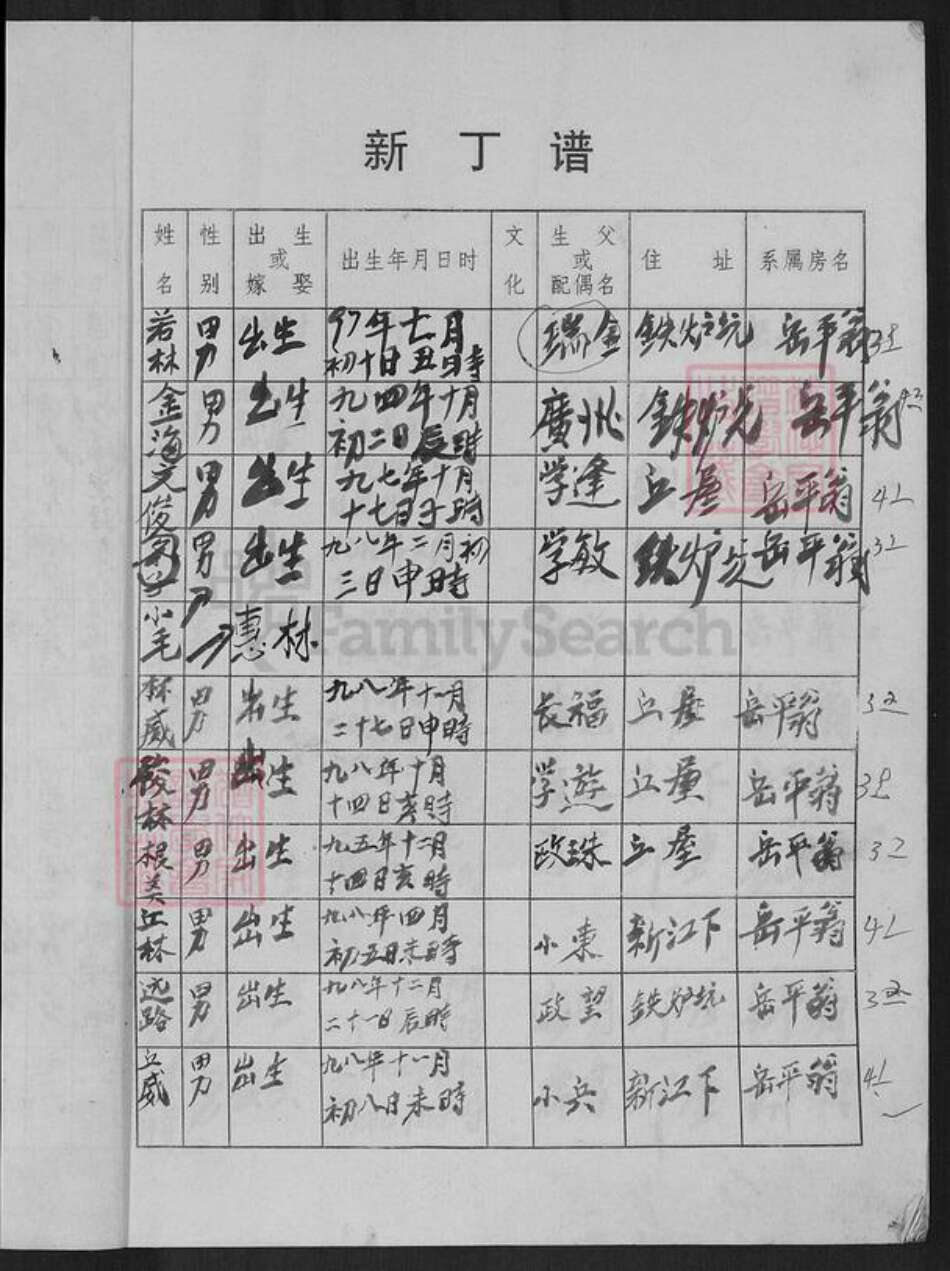 新丁谱
姓名 性别 出生或嫁娶 出生年月日时 文化 生父或配偶名 住址 系属房名
若林 男 出生 97年七月初十日丑时 瑞金 鉄炉坑 岳平翁
金海 男 出生 九四年十月初二日辰時 廣州 鉄炉坑 岳平翁
文俊 男 出生 九七年十月十七日子時 学逢 丘屋 岳平翁 41
男 出生 九八年二月初三日申時 学敏 鉄炉坑 岳平翁 32
小毛 惠林
林威 男 出生 九八年十一月二十七日申時 长福 丘屋 岳平翁 32
俊林 男 出生 九八年十月十四日亥時 学遊 丘屋 岳平翁
根美 男 出生 九五年十二月十四日亥時 政珠 丘屋 岳平翁 32
江林 男 出生 九八年四月初五日未時 小東 新江下 岳平翁 41
远路 男 出生 九八年十二月二十一日辰時 政望 鉄炉坑 岳平翁 32
丘威 男 出生 九八年十一月初八日未時 小兵 新江下 岳平翁 41
FamilySearch